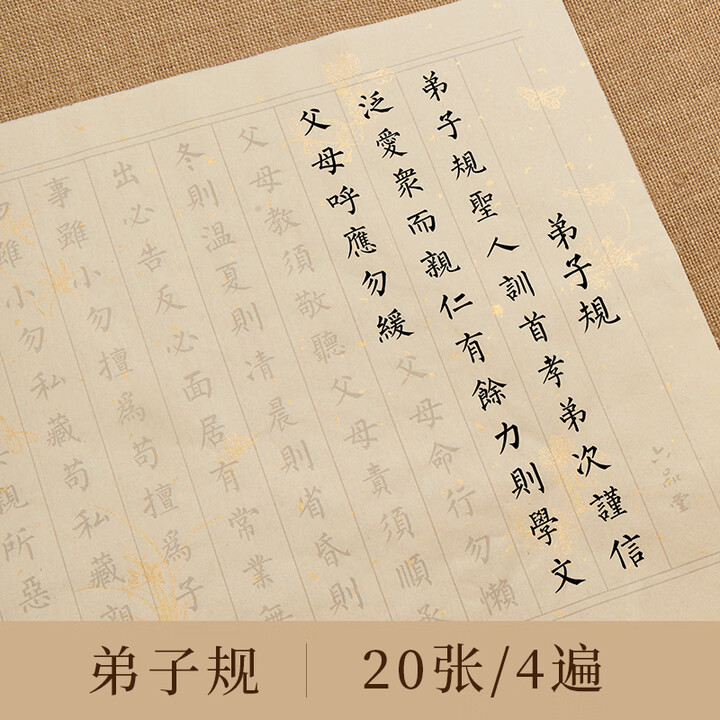 六品堂
弟子規
弟子規聖人訓首孝弟次謹信
泛愛衆而親仁有餘力則學文
父母呼應勿緩父母命行勿懶
父母教須敬聽父母責須順承
冬則温夏則清晨則省昏則
出必告反必面居有常業無
事雖小勿擅爲苟擅爲子
雖小勿私藏苟私藏親
親所惡
弟子规
20张/4遍